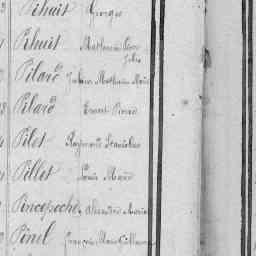 Pihuit Georges
Pihuit Mathurin
Pilard Julien Mathurin Marie
Pilard Ernest Pierre
Pilet Raymond Stanislas
Pillet Louis Marie
Pincepoche Alexandre Marie
Pinel François Marie Guillaume